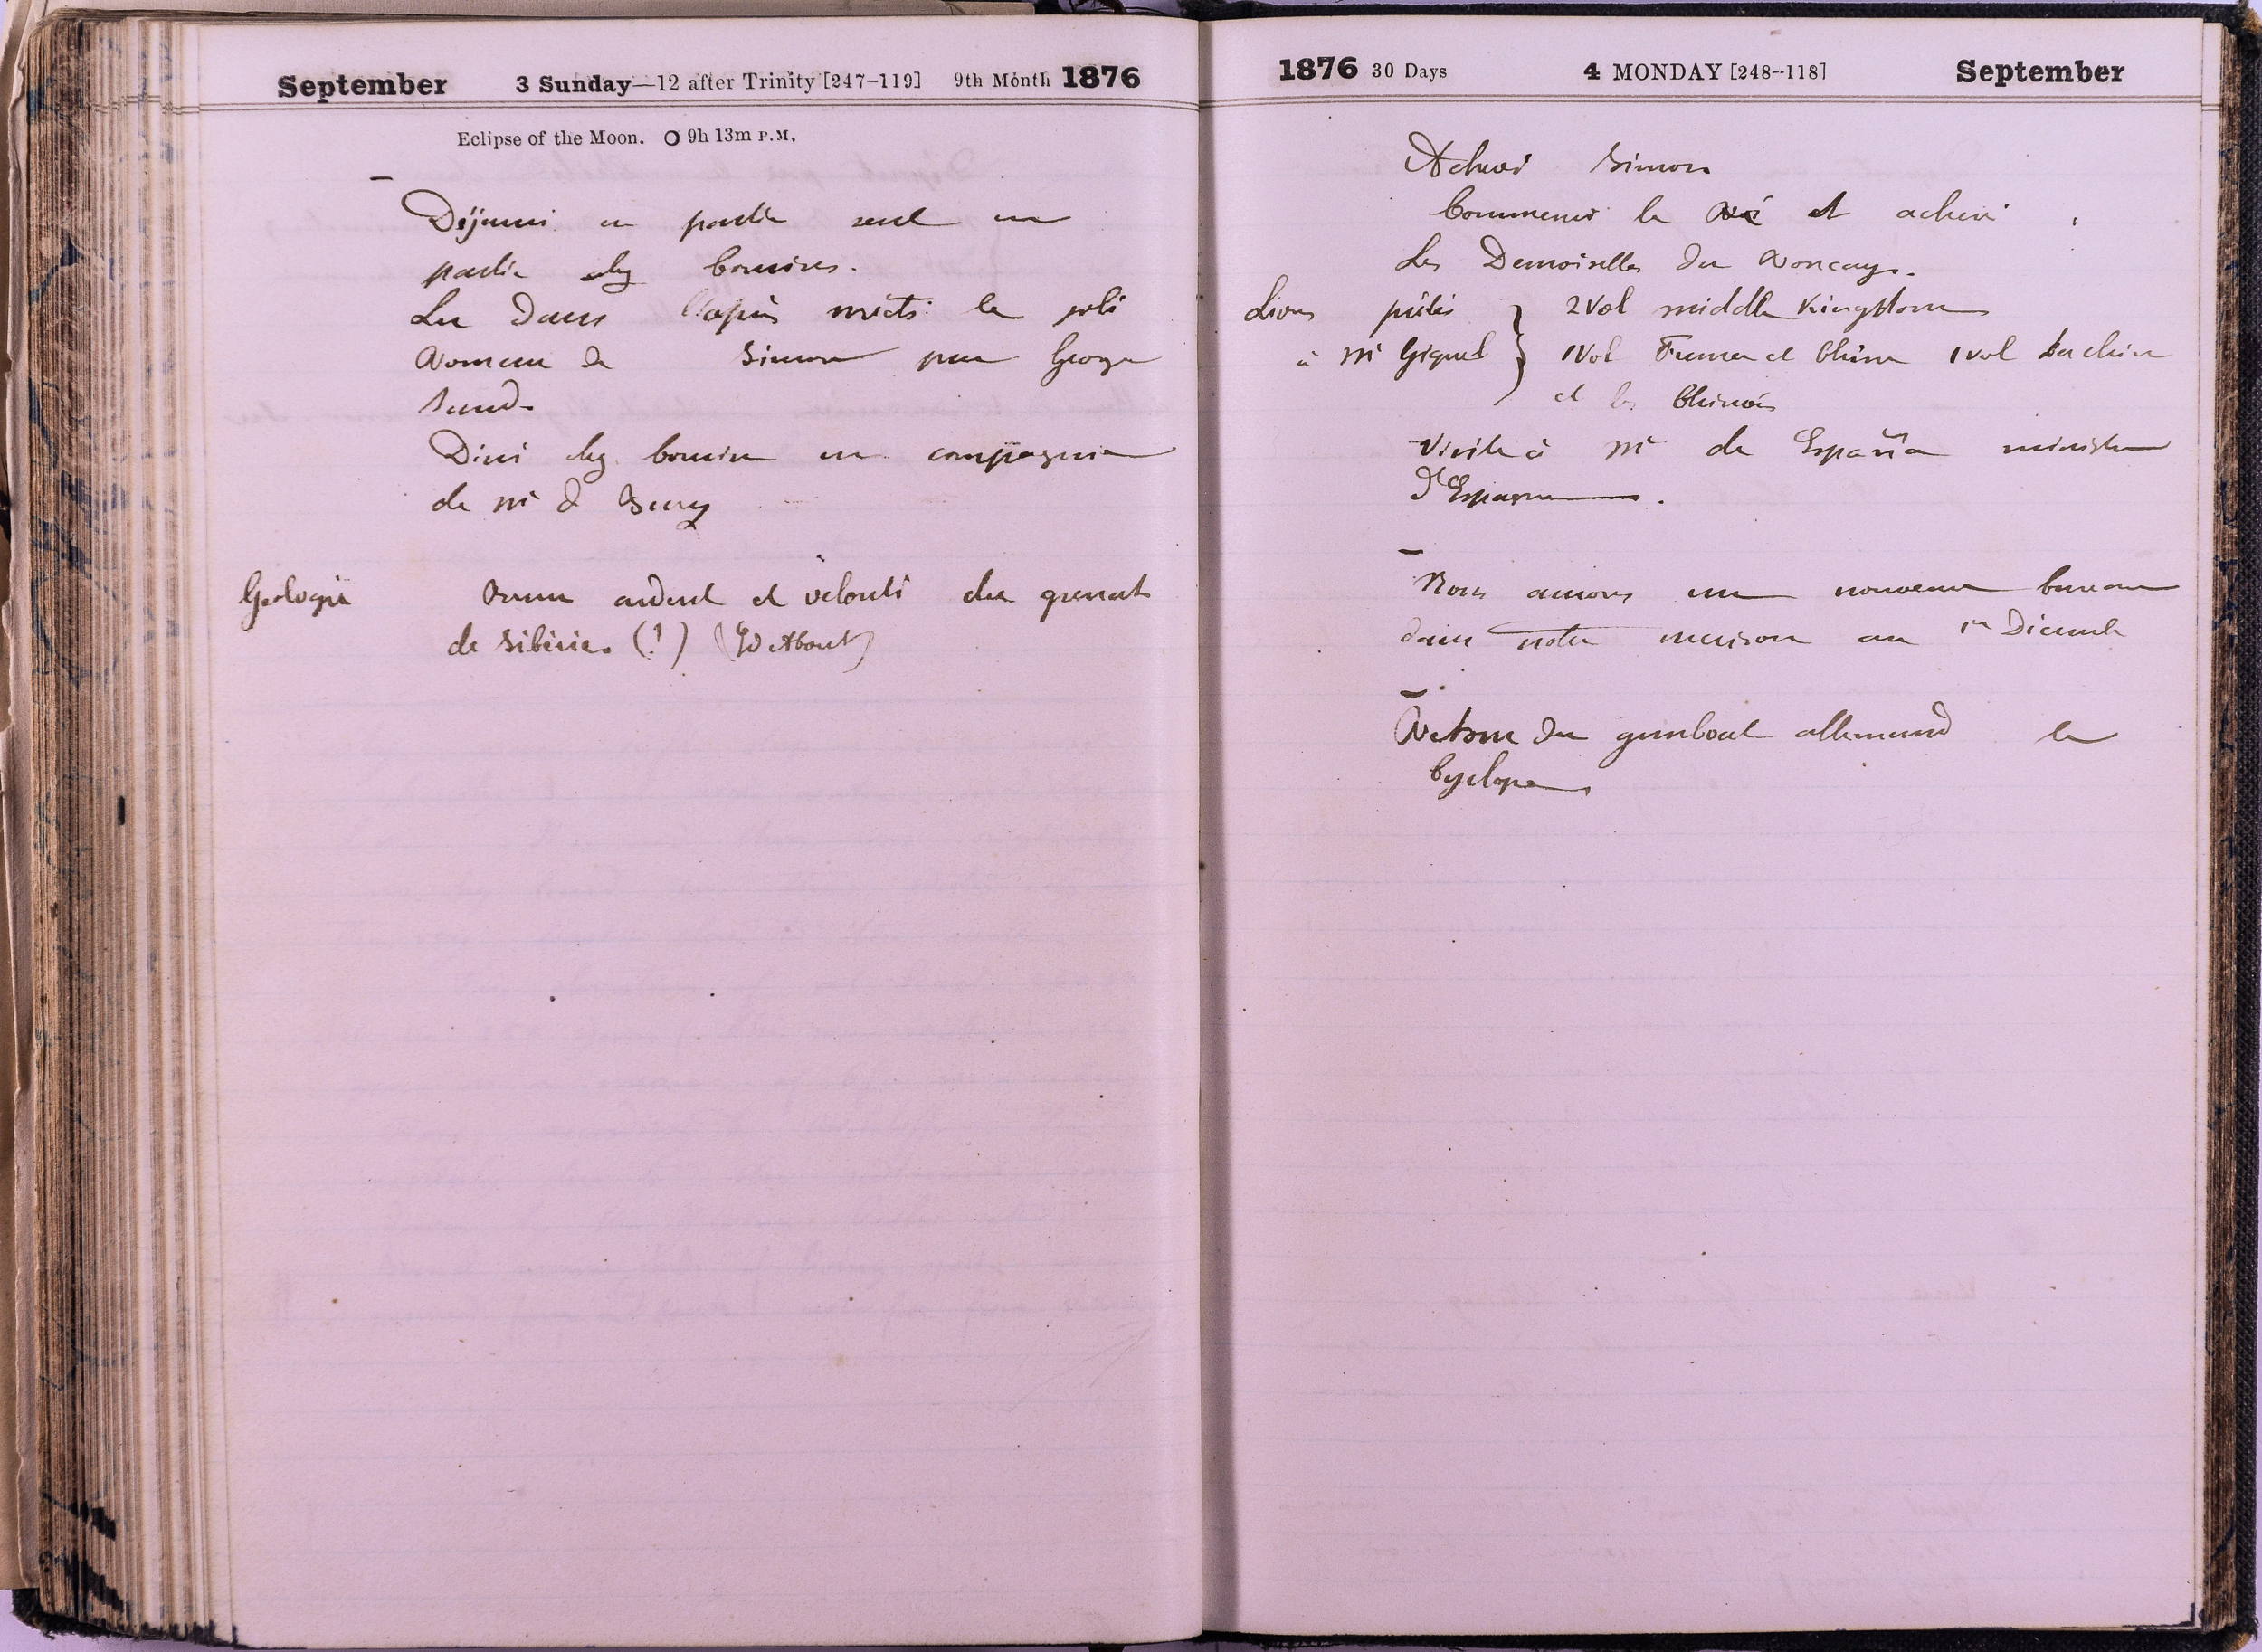 September 3 Sunday—12 after Trinity [247-119] 9th Month 1876
Eclipse of the Moon. O 9h 13m P.M.
Déjeuné en partie seul en
partie chez
Lu dans l'après midi le joli
roman de Simon par George
Sand.
Diné chez en compagnie
de Mr d
Géologie
ardent et velouté du grenat
de Sibérie. (?) (Ed About)
1876 30 Days 4 MONDAY [248-118] September
Achevé Simon
Commencé le et achevé
Les Demoiselles du Ronçay.
Livres prêtés } 2 Vol middle Kingdom
à Mr Giquel } 1 Vol France et Chine 1 vol La chine
et les Chinois
Visite à Mr de España ministre
d'Espagne.
Nous aurons un nouveau bureau
dans notre maison au 1er Décembre
Retour du gunboat allemand le
Cyclope